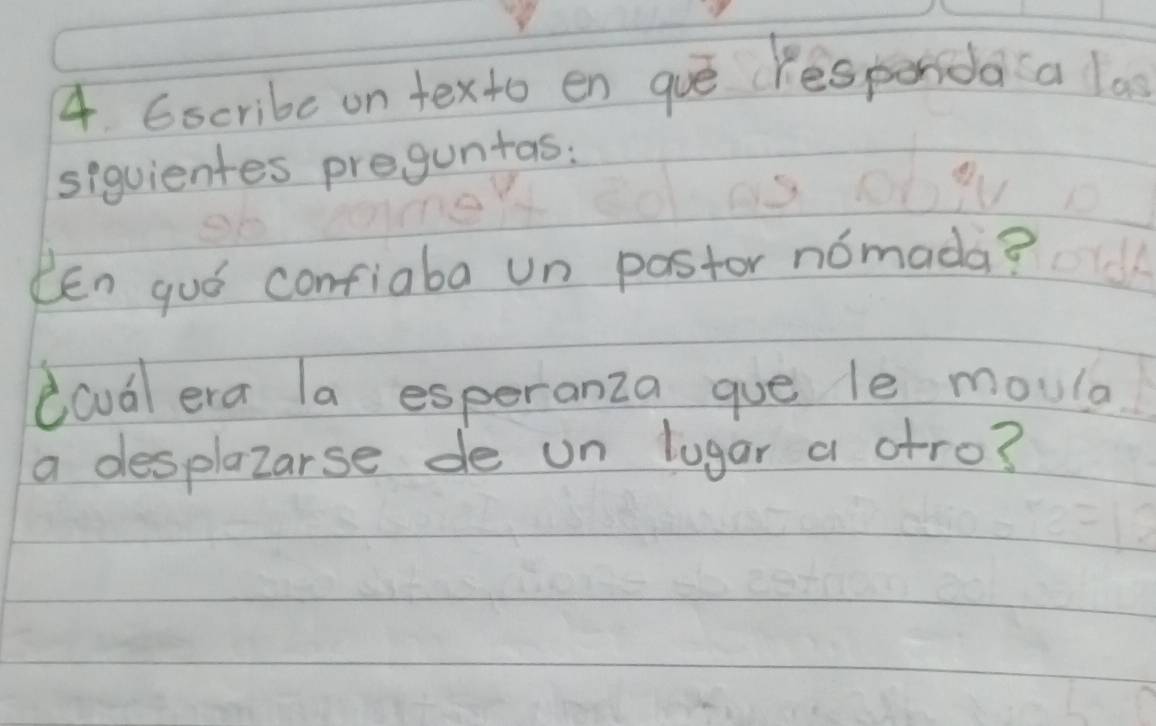 4. Escribe un texto en qué responda a las
siguientes preguntas:
¿En qué confiaba un pastor nómada?
¿cuál era la esperanza que le movía
a desplazarse de un lugar a otro?